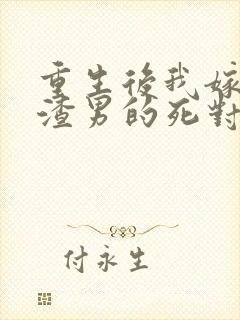 重生後我嫁
渣男的死對
付永生